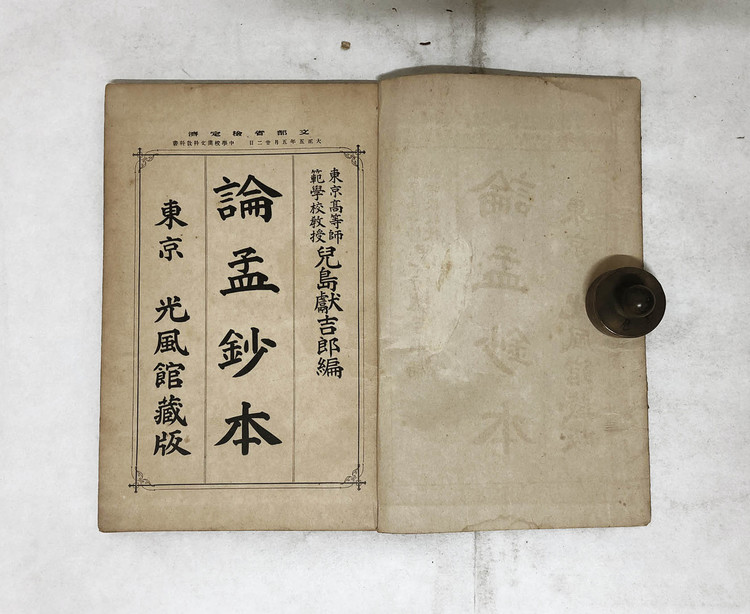 文部省檢定濟
大正五年五月廿二日 中學校漢文科敎科書
東京高等師
範學校敎授
兒島獻吉郎編
論孟鈔本
東京 光風館藏版